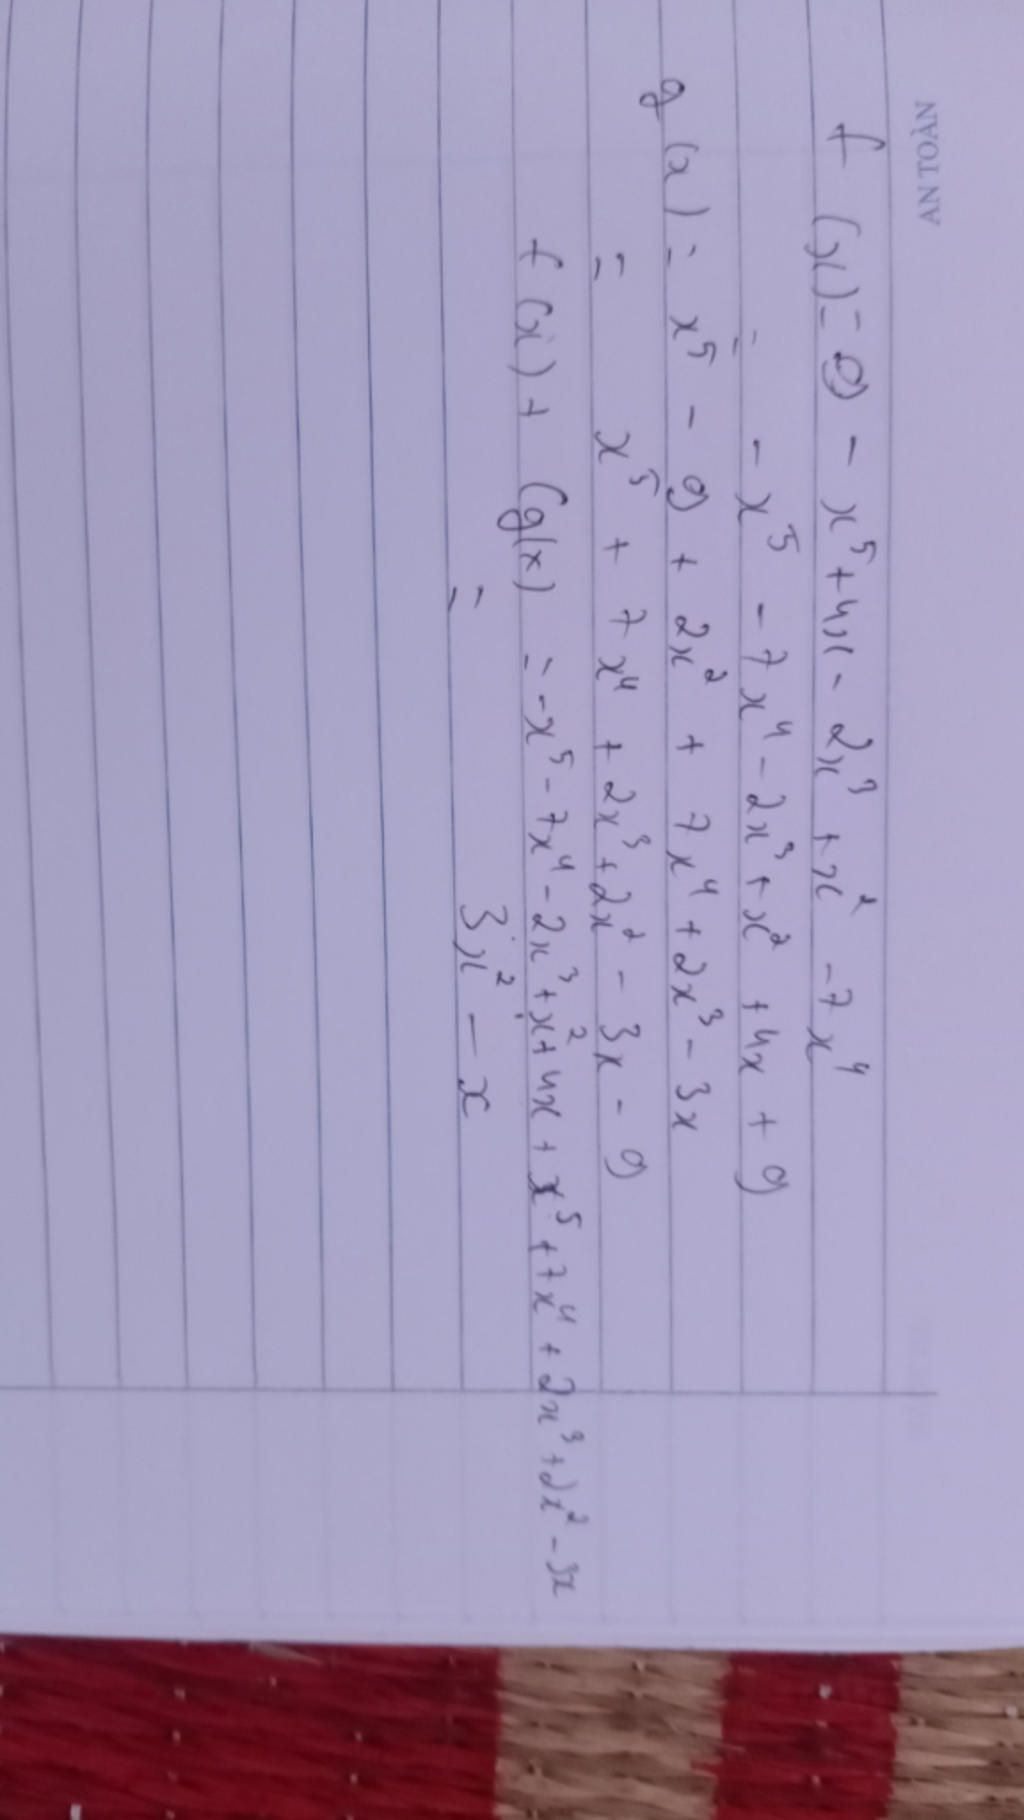 AN TOÀN
f (x) = 9 - x⁵ + 4x - 2x³ + x² - 7x⁴
= - x⁵ - 7x⁴ - 2x³ + x² + 4x + 9
g (x) = x⁵ - 9 + 2x² + 7x⁴ + 2x³ - 3x
= x⁵ + 7x⁴ + 2x³ + 2x² - 3x - 9
f (x) + (g(x) = -x⁵ - 7x⁴ - 2x³ + x² + 4x + x⁵ + 7x⁴ + 2x³ + 2x² - 3x
= 3x² - x